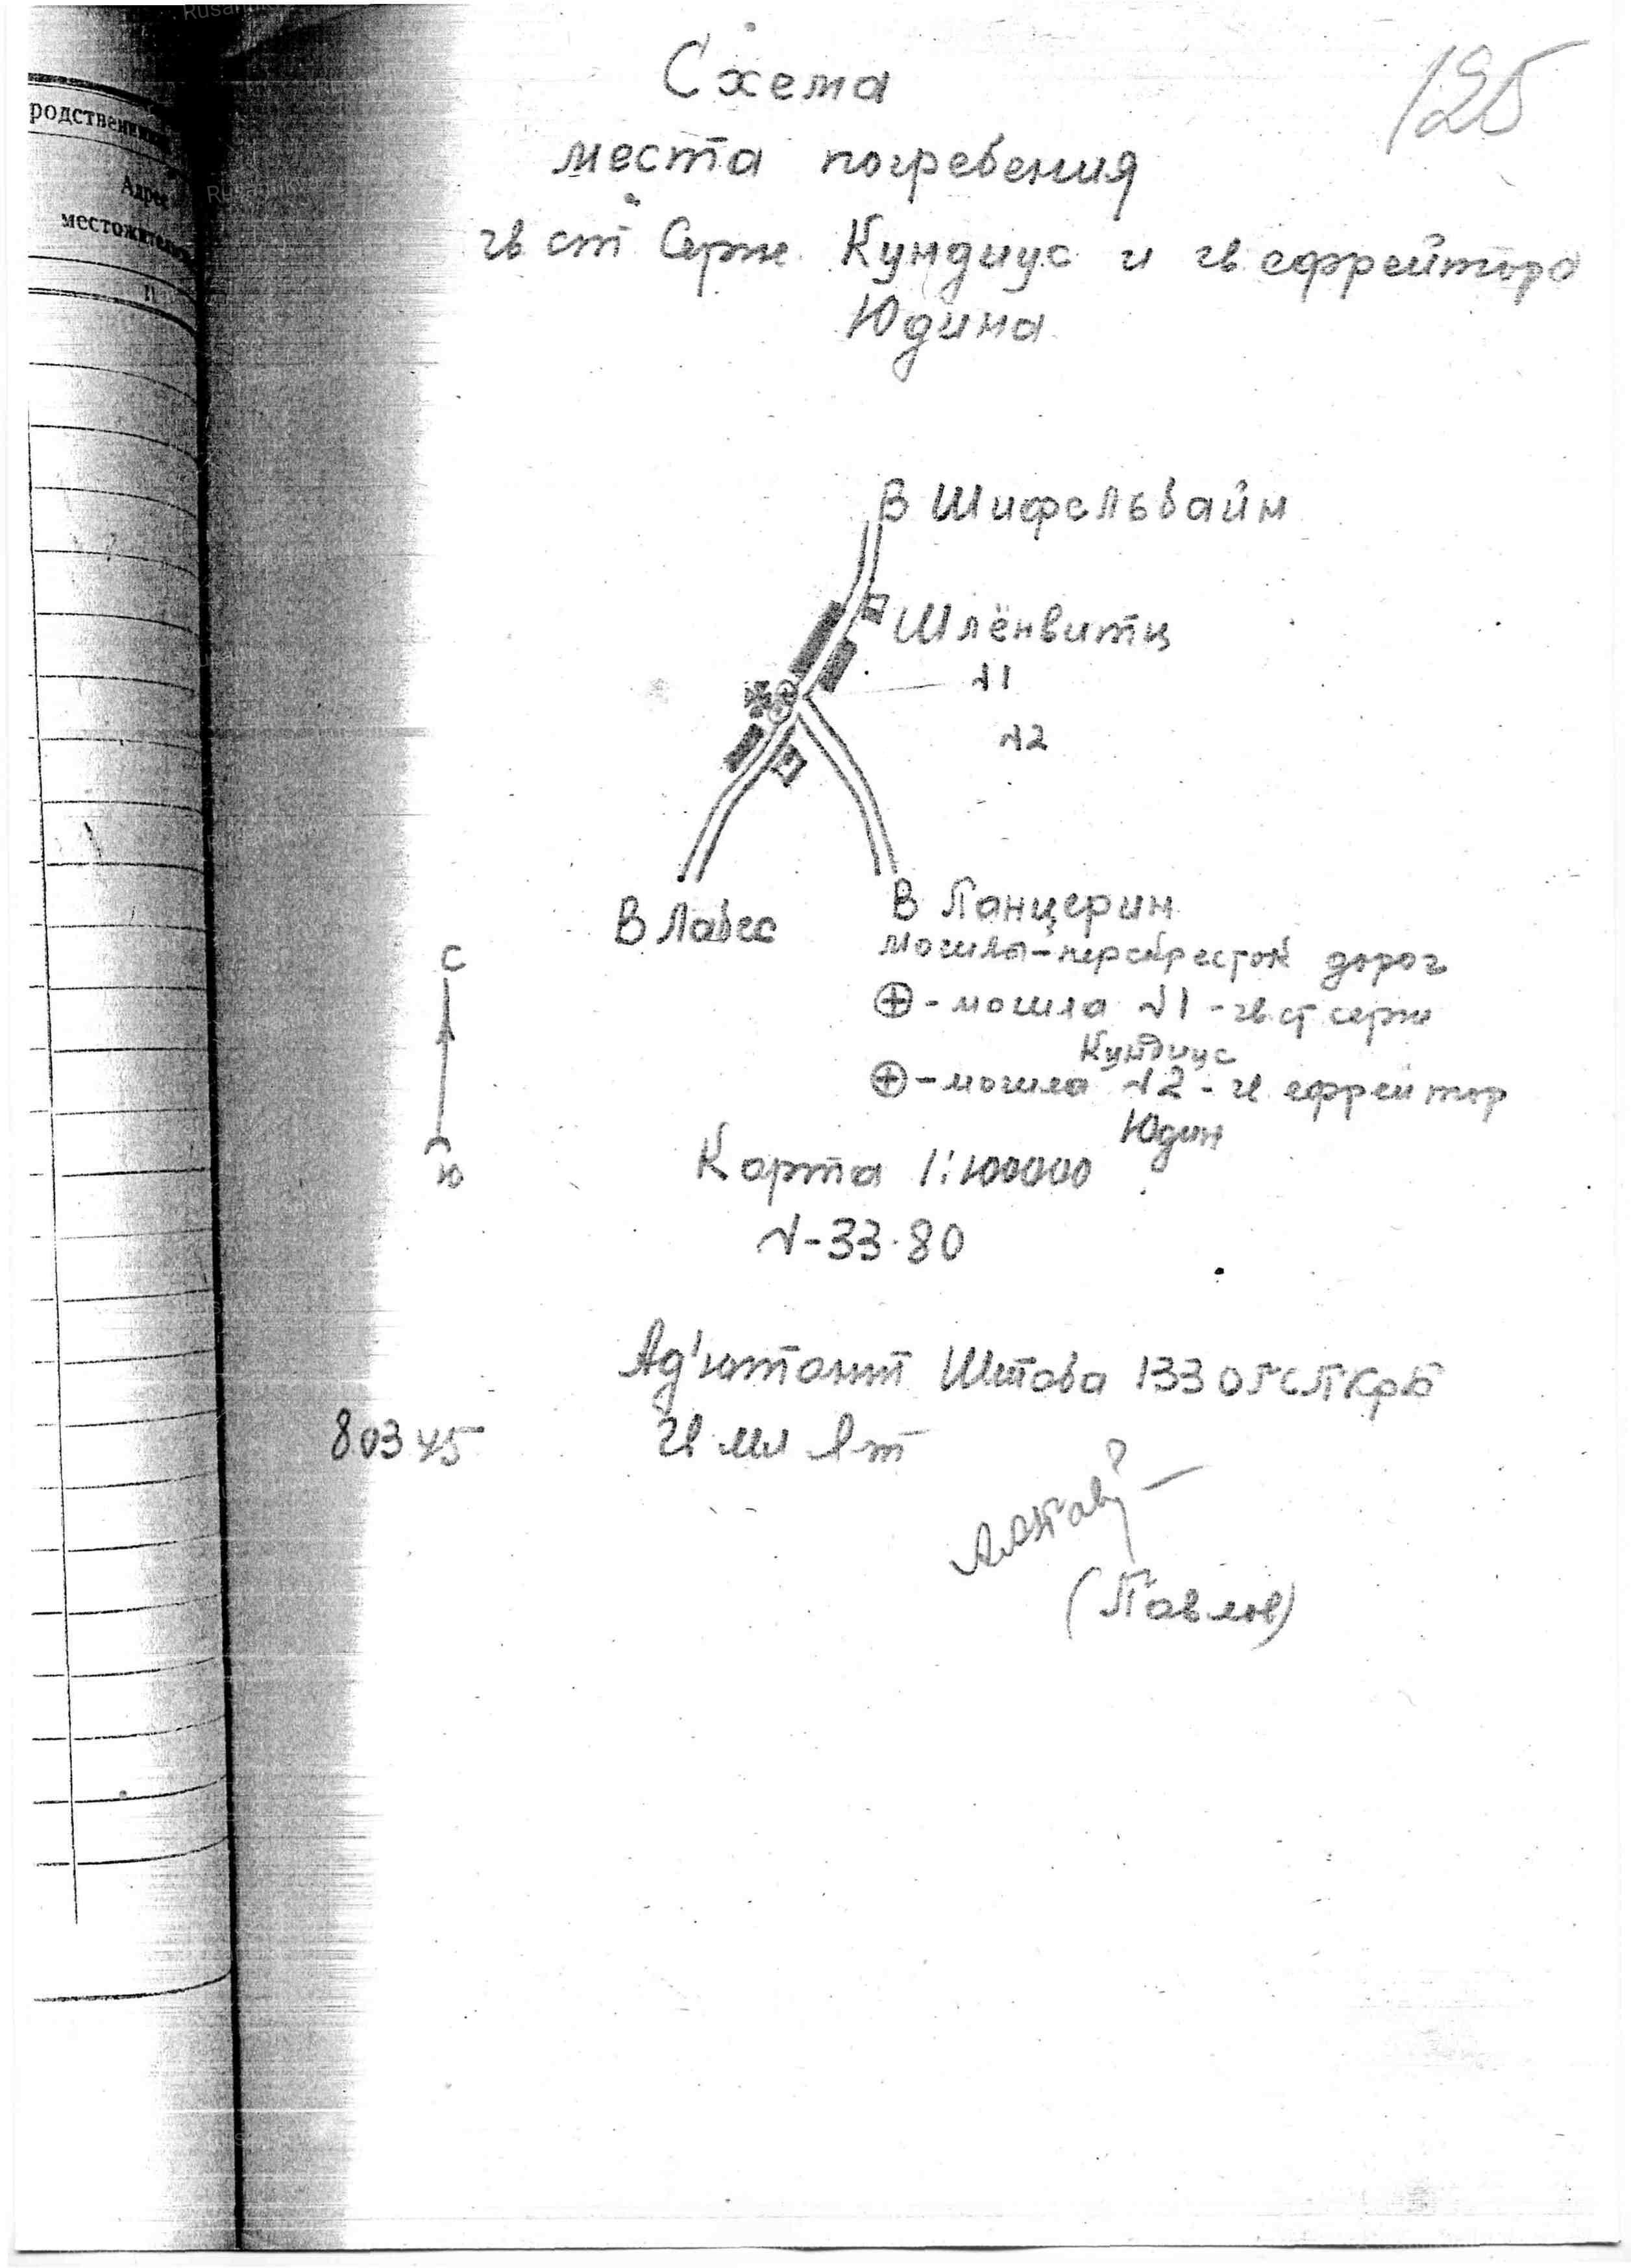 125
родственник
Адрес
местожитель
11
Схема
места погребения
гв ст Серж. Кундиус и гв ефрейтора
Юдина
В Шифельвайн
Шлёнвитц
N1
N2
В Лабес
В Ланцерин
Могилы-перекресток дорог
⊕ - могила N1 - гв. ст серж
Кундиус
⊕ - могила N2 - гв ефрейтор
Юдин
С
Ю
Карта 1:100000
N-33-80
Ад'ютант Штаба 133 ОГСПКрБ
8 03 45 гв мл л-т
(Павлов)